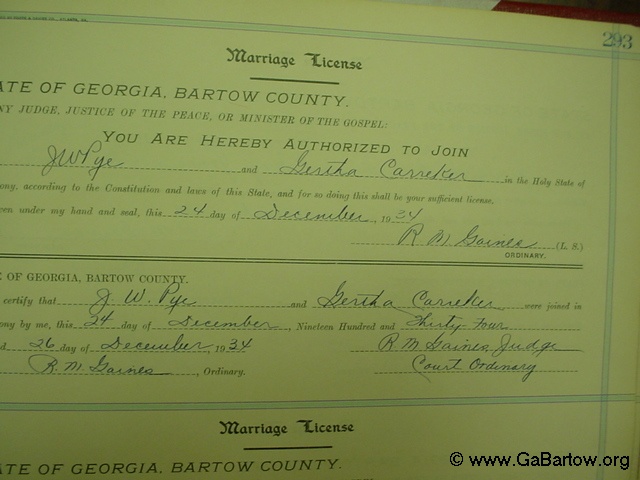 293
Marriage License
ATE OF GEORGIA, BARTOW COUNTY.
NY JUDGE, JUSTICE OF THE PEACE, OR MINISTER OF THE GOSPEL:
YOU ARE HEREBY AUTHORIZED TO JOIN
J W Pye and Gertha Carreker in the Holy State of
ony, according to the Constitution and laws of this State, and for so doing this shall be your sufficient license.
en under my hand and seal, this 24 day of December, 1934
R M Gaines (L. S.)
ORDINARY.
E OF GEORGIA, BARTOW COUNTY.
certify that J. W. Pye and Gertha Carreker were joined in
ony by me, this 24 day of December, Nineteen Hundred and Thirty Four
d 26 day of December, 1934 R. M. Gaines, Judge
R. M. Gaines, Ordinary. Court Ordinary
Marriage License
ATE OF GEORGIA, BARTOW COUNTY.
© www.GaBartow.org